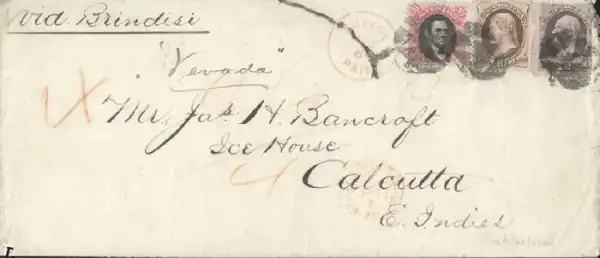 via Brindisi
"Nevada"
Mr. Jas. H. Bancroft
Ice House
Calcutta
E. Indies